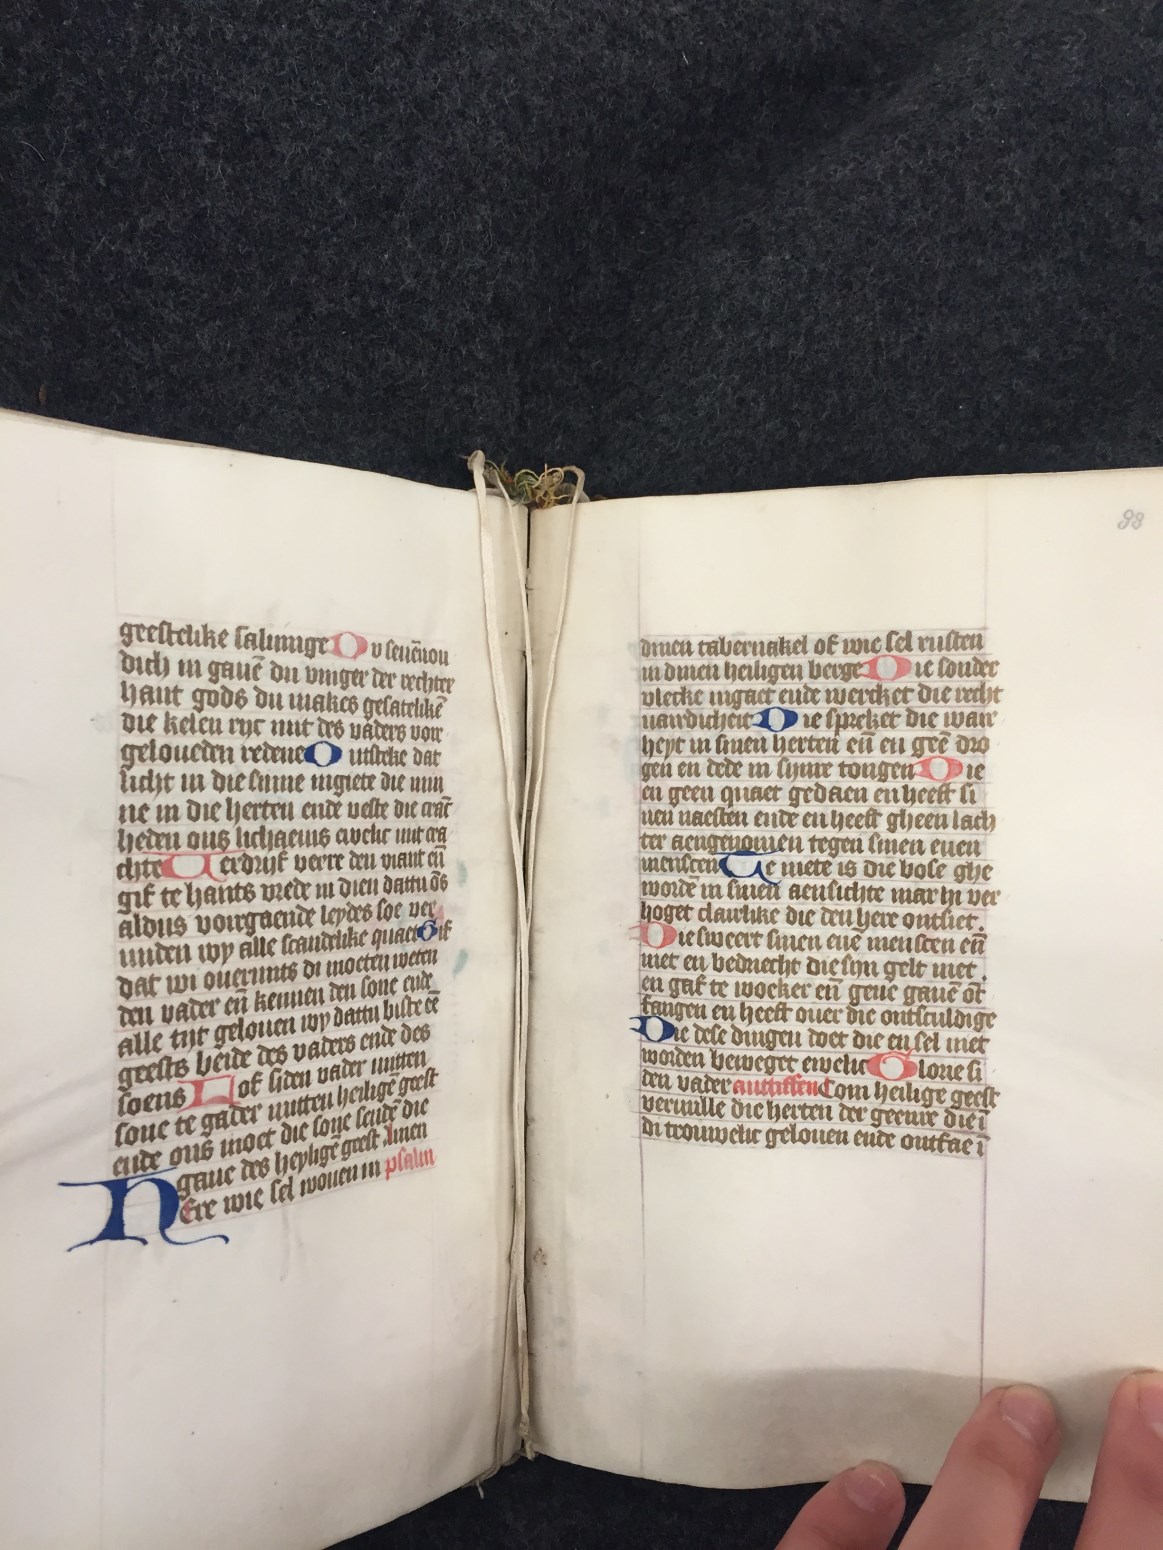 geestelike salunige Du seuēuou
dich in gauē du vinger der rechter
hant gods du makes gesatelikē
die kelen ryc mit des vaders voir
geloueden redene Ontsteke dat
licht in die sinne ingiete die min
ne in die herten ende veste die crāc
heden ons lichaems ewelic mit cra
chte Verdrijf verre den viant eñ
gif te hants vrede in dien dattu ōs
aldus voirgaende leydes soe ver
miden wy alle scandelike quaet Gif
dat wi ouermits di moeten weten
den vader eñ kennen den sone ende
alle tijt gelouen wy dattu biste eē
geests beide des vaders ende des
soens Lof si den vader mitten
sone te gader mitten heilige geest
ende ons moet die sone sendē die
gaue des heyligē geest Amen
Here wie sel wonen in psalm
98
dinen tabernakel of wie sel rusten
in dinen heiligen berge Die sonder
vlecke ingaet ende wercket die recht
uairdicheit Die spreket die waer
heyt in sinen herten eñ en geē dro
gen en dede in synre tongen Die
en geen quaet gedaen en heeft si
nen naesten ende en heeft gheen lach
ter aengenomen tegen sinen euen
menscen Te niete is die bose ghe
wordē in sinen aensichte mar hi ver
hoget claerlike die den here ontsiet.
Die sweert sinen euē menscen eñ
niet en bedriecht die syn gelt niet.
en gaf te woeker eñ geue gauē ōt
fangen en heeft ouer die ontsculdige
Die dese dingen doet die en sel niet
worden beweget ewelic Glorie si
den vader antiffen Com heilige geest
veruulle die herten der geenre die ī
di trouwelic gelouen ende ontfae ī